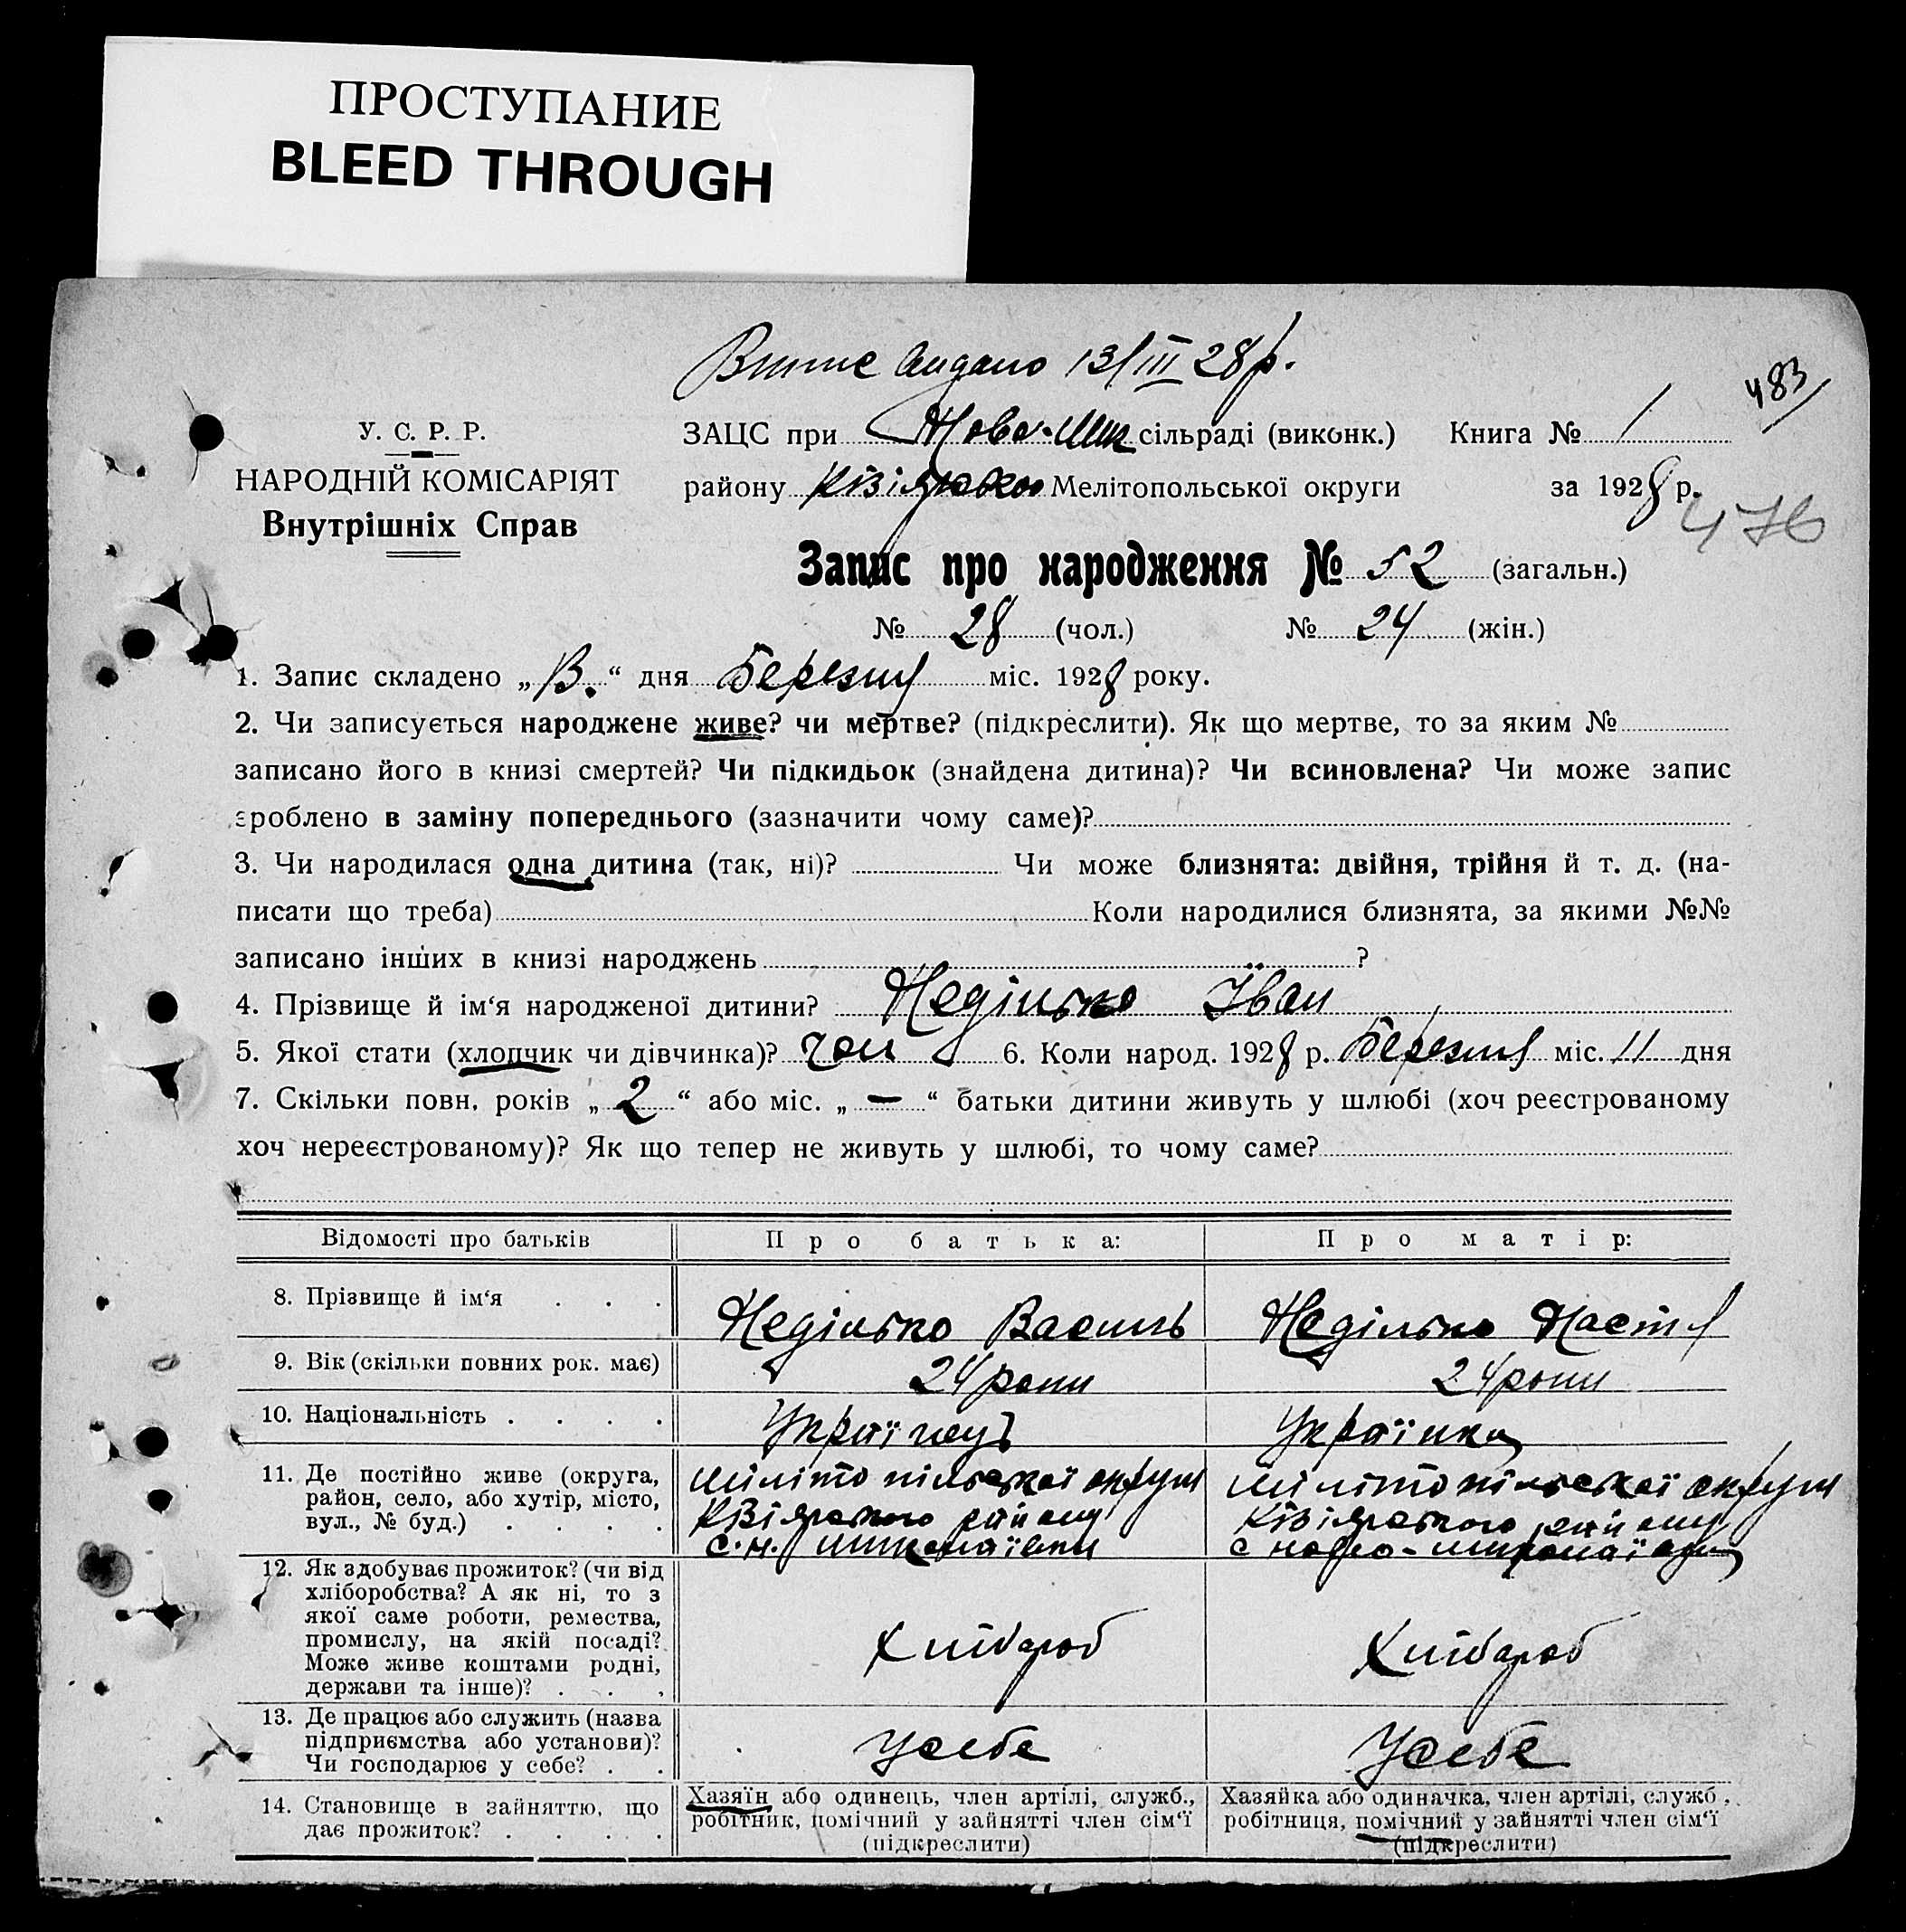 ПРОСТУПАНИЕ
BLEED THROUGH
видано 13/III 28р.
483
У. С. Р. Р.
НАРОДНІЙ КОМІСАРІЯТ
Внутрішніх Справ
ЗАЦС при Ново-Мик сільраді (виконк.) Книга № 1
району Мелітопольської округи за 1928 р.
476
Запис про народження № 52 (загальн.)
№ 28 (чол.) № 24 (жін.)
1. Запис складено „13.“ дня Березня міс. 1928 року.
2. Чи записується народжене живе? чи мертве? (підкреслити). Як що мертве, то за яким №
записано його в книзі смертей? Чи підкидьок (знайдена дитина)? Чи всиновлена? Чи може запис
зроблено в заміну попереднього (зазначити чому саме)?
3. Чи народилася одна дитина (так, ні)? Чи може близнята: двійня, трійня й т. д. (на-
писати що треба) Коли народилися близнята, за якими №№
записано інших в книзі народжень ?
4. Прізвище й ім‘я народженої дитини? Неділько Іван
5. Якої стати (хлопчик чи дівчинка)? чол 6. Коли народ. 1928 р. Березня міс. 11 дня
7. Скільки повн. років „2“ або міс. „—“ батьки дитини живуть у шлюбі (хоч реєстрованому
хоч нереєстрованому)? Як що тепер не живуть у шлюбі, то чому саме?
Відомості про батьків Про батька: Про матір:
8. Прізвище й ім‘я . . . Неділько Василь Неділько Настя
9. Вік (скільки повних рок. має) 24 роки 24 роки
10. Національність . . . . Українець Українка
11. Де постійно живе (округа,
район, село, або хутір, місто,
вул., № буд.) . . . .
Мілітопільської округи
району
с. Н. Миколаївки
Мілітопільської округи
району
с Ново-Миколаївки
12. Як здобуває прожиток? (чи від
хліборобства? А як ні, то з
якої саме роботи, ремества,
промислу, на якій посаді?
Може живе коштами родні,
держави та інше)? . . .
Хлібороб Хлібороб
13. Де працює або служить (назва
підприємства або установи)?
Чи господарює у себе? . .
У себе У себе
14. Становище в зайняттю, що
дає прожиток? . . . .
Хазяїн або одинець, член артілі, служб.,
робітник, помічний у зайнятті член сім‘ї
(підкреслити)
Хазяйка або одиначка, член артілі, служб.,
робітниця, помічний у зайнятті член сім‘ї
(підкреслити)